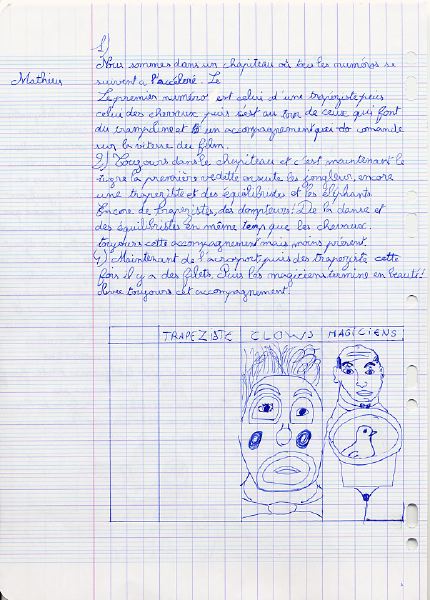 1)
Nous sommes dans un chapiteau où tous les numéros se
Mathieu
suivent a l'accéléré. Le
Le premier numéro est celui d'une trapeziste puis
celui des chevaux puis s'est au tour de ceux qui font
du trampoline et un accompagnement qui comande
sur la vitesse du film.
2) Toujours dans le chapiteau et c'est maintenant le
tigre la première vedette ensuite les jongleur, encore
une trapeziste et des équilibristes et les éléphants
Encore de trapezistes, des dompteurs. De la danse et
des équilibristes en même temps que les chevaux.
toujours cette accompagnement mais moins présent.
4) Maintenant de l'acrosport puis des trapeziste cette
fois il y a des filets. Puis les magiciens termine en beauté!
Avec toujours cet accompagnement.
TRAPEZISTE CLOWS MAGICIENS